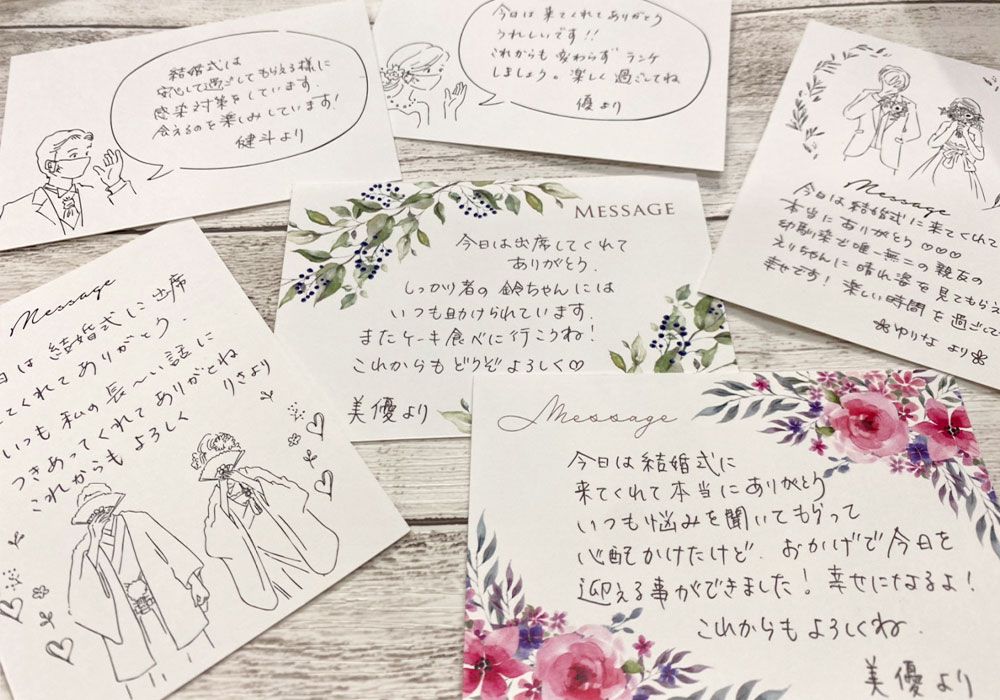 結婚式は
安心して過ごしてもらえる様に
感染対策をしています。
会えるのを楽しみしています!
健斗より
今日は来てくれてありがとう
うれしいです!!
これからも変わらず ランチ
しましょう。楽しく過ごしてね
優より
Message
今日は結婚式に来てくれて
本当にありがとう♡♡♡
幼馴染で唯一無二の親友の
えりちゃんに晴れ姿を見てもらえ
幸せです!楽しい時間を過ごして
ゆりなより
MESSAGE
今日は出席してくれて
ありがとう。
しっかり者の鈴ちゃんには
いつも助けられています。
またケーキ食べに行こうね!
これからもどうぞよろしく♡
美優より
Message
日は結婚式に出席
てくれてありがとう。
いつも私の長〜い話に
つきあってくれてありがとね
これからもよろしく
りさより
Message
今日は結婚式に
来てくれて本当にありがとう
いつも悩みを聞いてもらって
心配かけたけど、おかげで今日を
迎える事ができました!幸せになるよ!
これからもよろしくね。
美優より